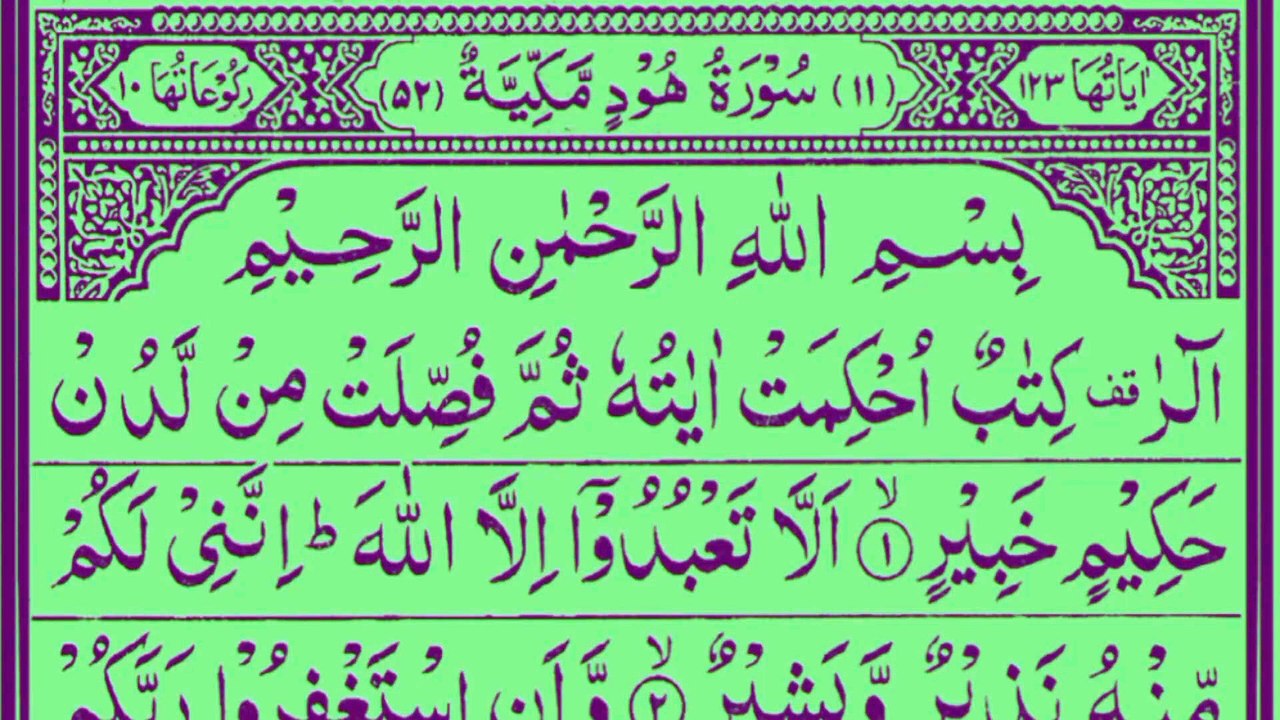 اٰيَاتُهَا ١٢٣ (١١) سُوْرَةُ هُوْدٍ مَّكِّيَّةٌ (۵۲) رُكُوْعَاتُهَا ١٠
بِسْمِ اللّٰهِ الرَّحْمٰنِ الرَّحِيْمِ
الٓرٰ قف كِتٰبٌ اُحْكِمَتْ اٰيٰتُهٗ ثُمَّ فُصِّلَتْ مِنْ لَّدُنْ
حَكِيْمٍ خَبِيْرٍ ۙ ﴿١﴾ اَلَّا تَعْبُدُوْٓا اِلَّا اللّٰهَ ؕ اِنَّنِىْ لَكُمْ
مِّنْهُ نَذِيْرٌ وَّبَشِيْرٌ ۙ ﴿٢﴾ وَّاَنِ اسْتَغْفِرُوْا رَبَّكُمْ